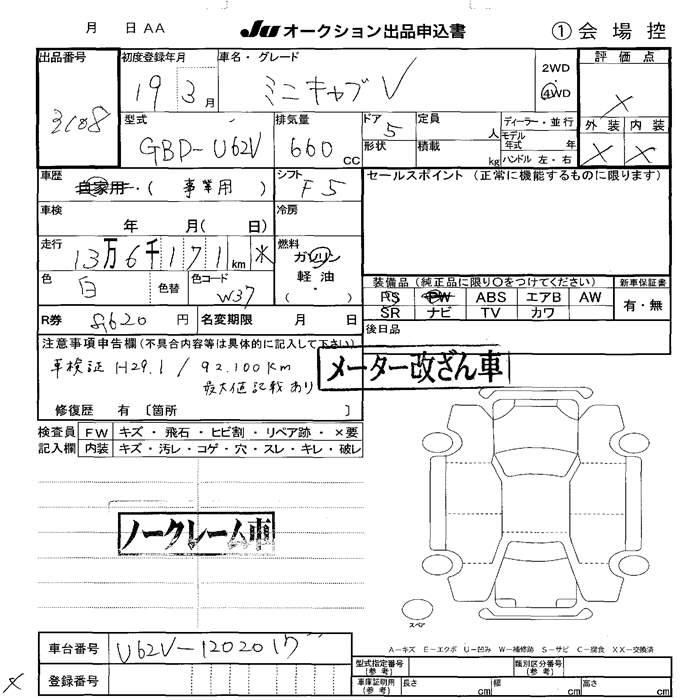 月 日 AA JU オークション出品申込書 ① 会場控
出品番号 初度登録年月 車名・グレード 2WD 評価点
3108 19 3月 ミニキャブV 4WD ×
型式 排気量 ドア 定員 ディーラー・並行 外装 内装
GBD-U62V 660 CC 5 人 モデル年式 年 × ×
形状 積載 kg ハンドル 左・右
車歴 自家用・( 事業用 ) シフト F5 セールスポイント (正常に機能するものに限ります)
車検 年 月( 日) 冷房
走行 13万6千171km ※ 燃料 ガソリン
軽油
( ・ )
色 白 色替 色コード W37 装備品 (純正品に限り○をつけてください) 新車保証書
PS PW ABS エアB AW 有・無
SR ナビ TV カワ
R券 8620 円 名変期限 月 日 後日品
注意事項申告欄(不具合内容等は具体的に記入して下さい)
車検証 H29.1 / 92.100km
最大値記載あり
メーター改ざん車
修復歴 有 〔箇所 〕
検査員 FW キズ・飛石・ヒビ割・リペア跡・×要
記入欄 内装 キズ・汚レ・コゲ・穴・スレ・キレ・破レ
ノークレーム車
スペア
A-キズ E-エクボ U-凹み W-補修跡 S-サビ C-腐食 XX-交換済
車台番号 U62V-1202017
登録番号
型式指定番号 (参考) 類別区分番号 (参考)
車庫証明用 (参考) 長さ cm 幅 cm 高さ cm
×